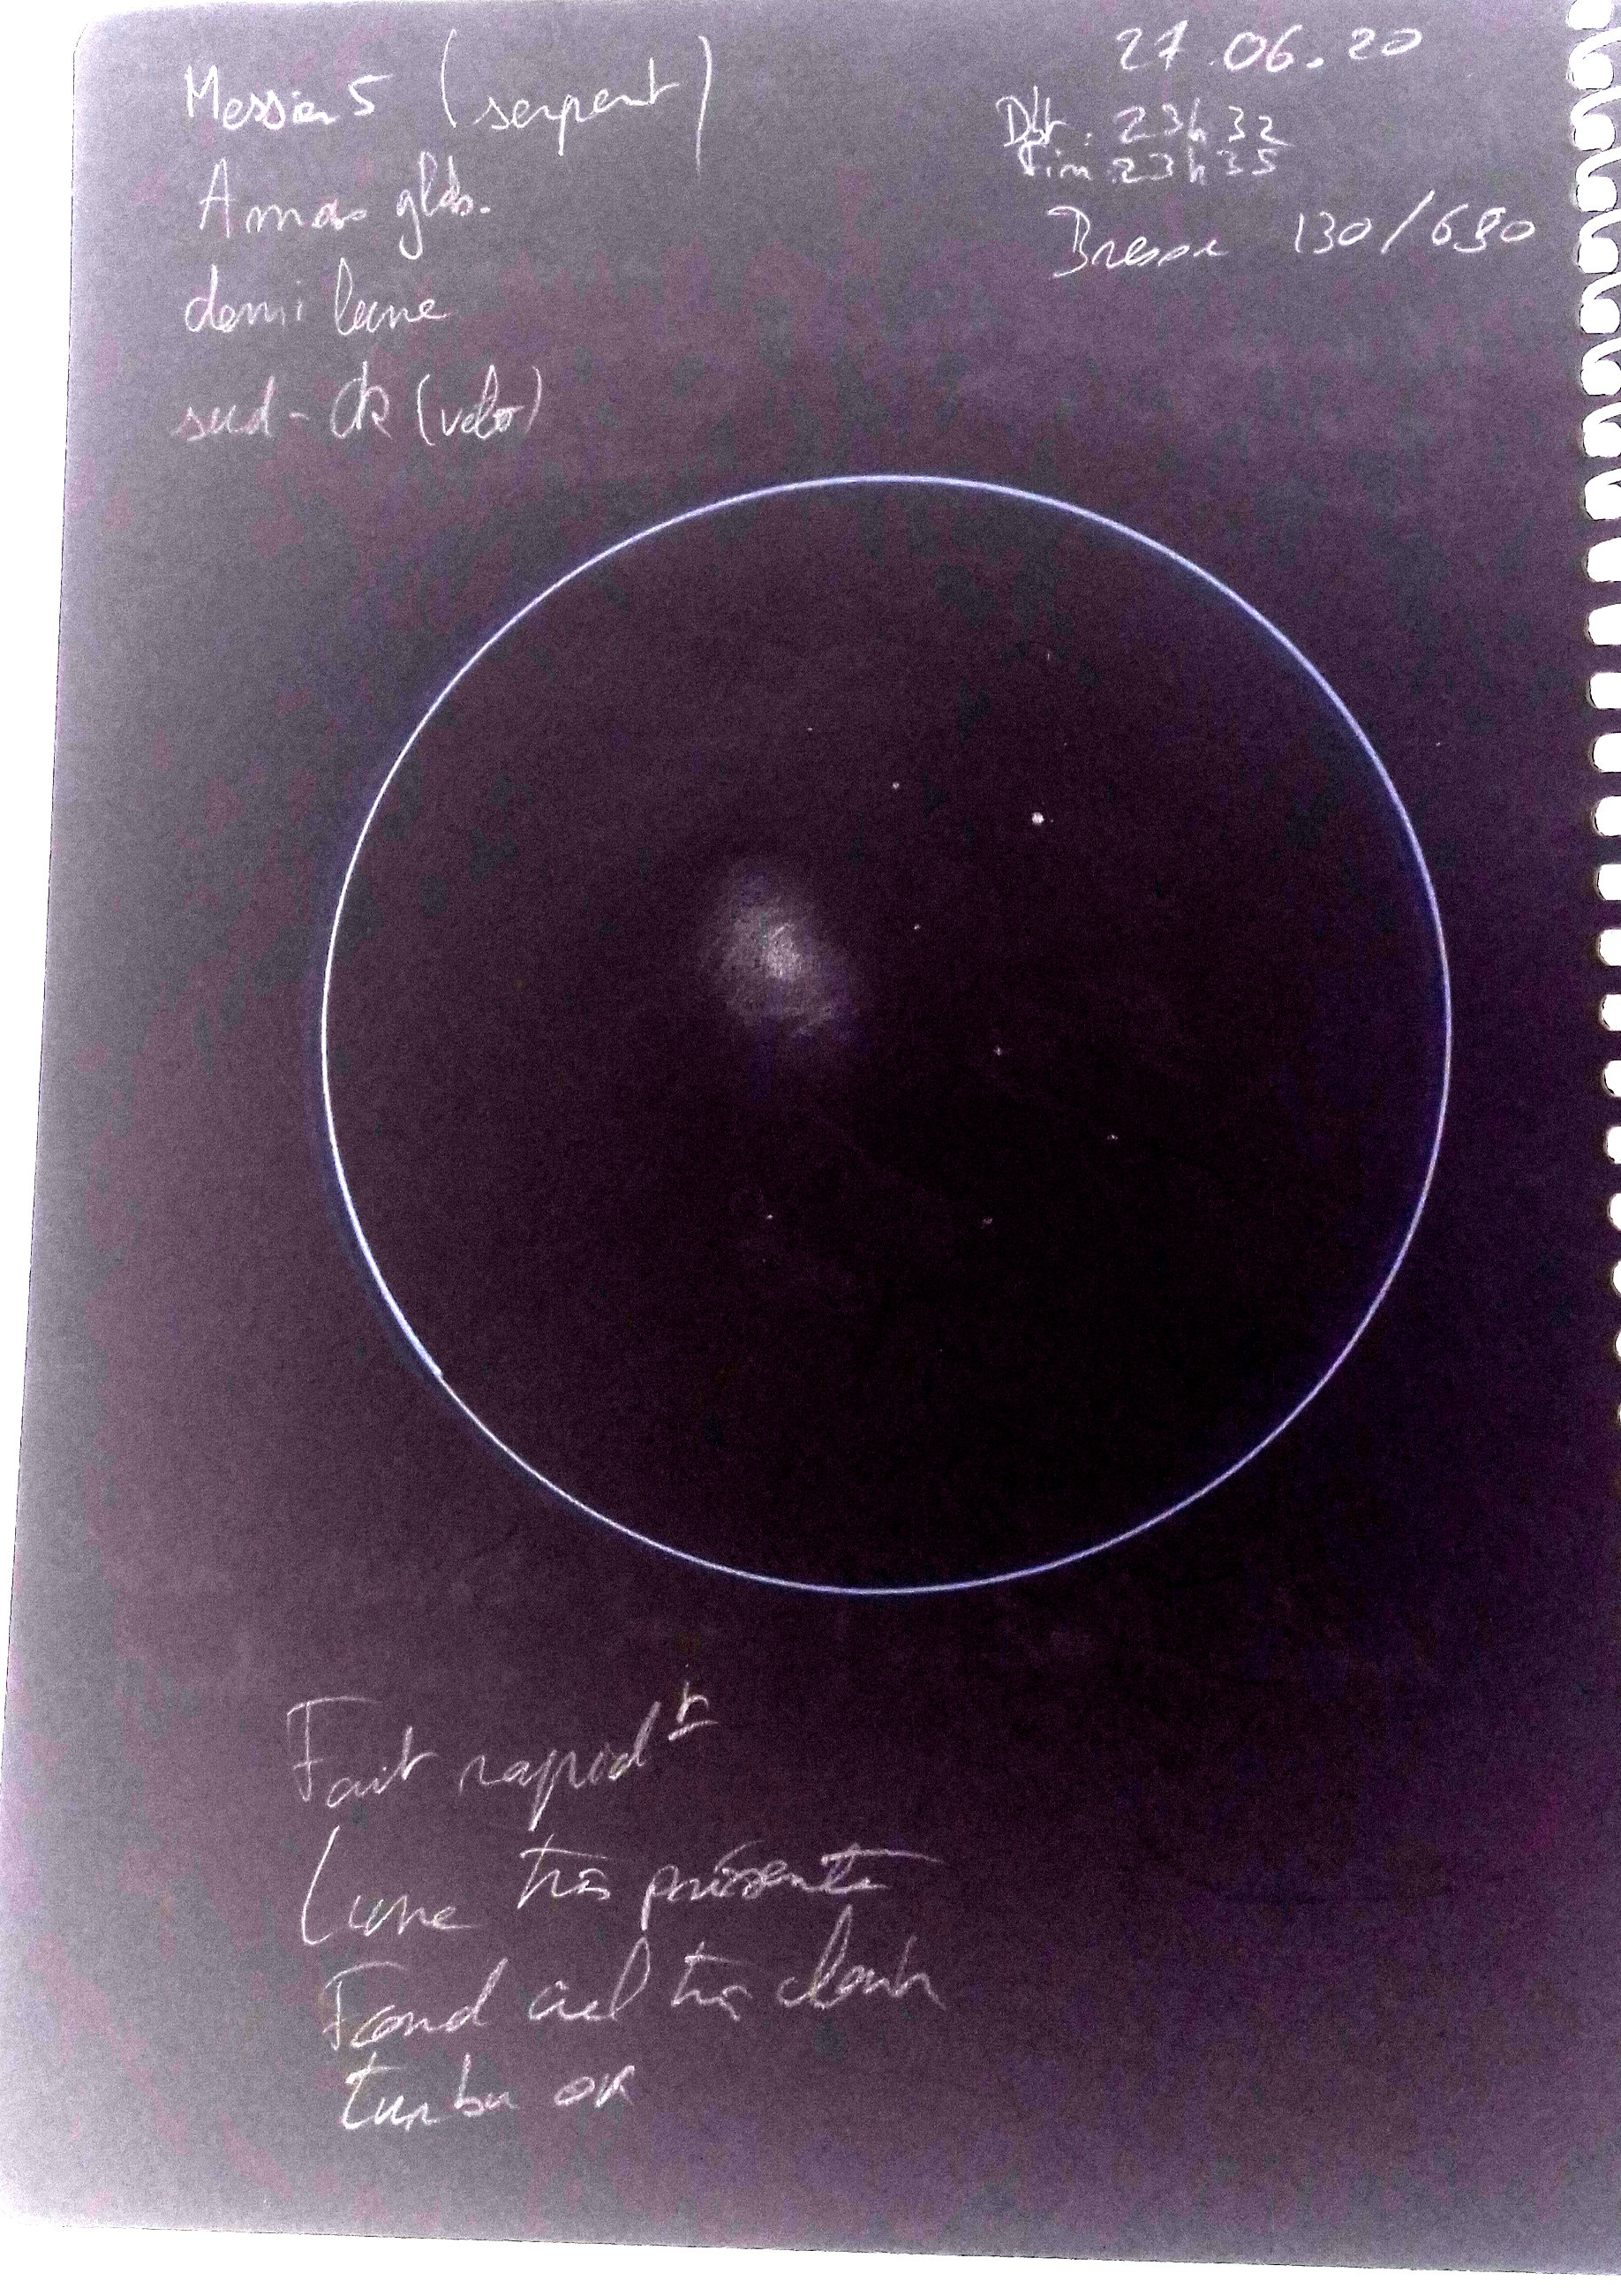 Messier 5 (serpent)
Amas glob.
demi lune
sud-
27.06.20
Dbt : 23h32
Fin : 23h35
Bresser 130/650
Fait rapidt
Lune très présente
Fond ciel très clair
turbu OK